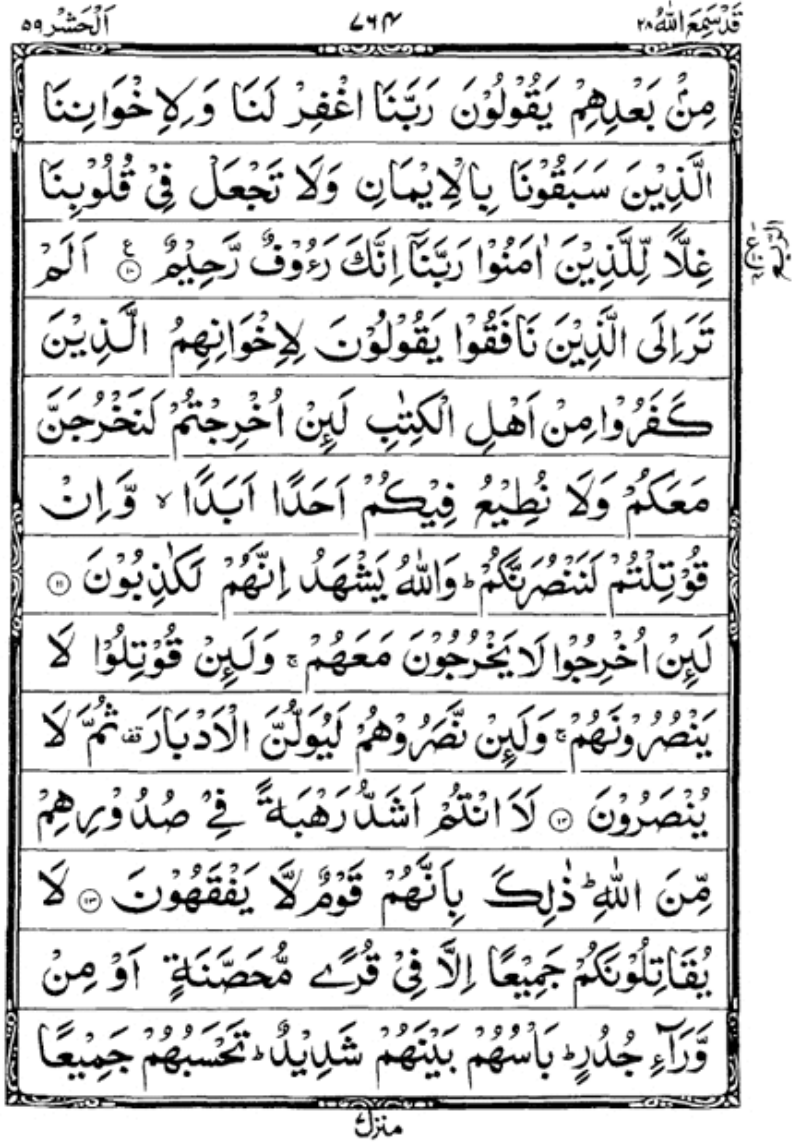 قَدْ سَمِعَ اللّٰهُ ٢٨ ٧٦٤ اَلْحَشْر ٥٩
مِنْۢ بَعْدِهِمْ يَقُوْلُوْنَ رَبَّنَا اغْفِرْ لَنَا وَ لِاِخْوَانِنَا
الَّذِيْنَ سَبَقُوْنَا بِالْاِيْمَانِ وَلَا تَجْعَلْ فِيْ قُلُوْبِنَا
غِلًّا لِّلَّذِيْنَ اٰمَنُوْا رَبَّنَاۤ اِنَّكَ رَءُوْفٌ رَّحِيْمٌ ۧ ١٠ اَلَمْ
تَرَ اِلَى الَّذِيْنَ نَافَقُوْا يَقُوْلُوْنَ لِاِخْوَانِهِمُ الَّذِيْنَ
كَفَرُوْا مِنْ اَهْلِ الْكِتٰبِ لَىِٕنْ اُخْرِجْتُمْ لَنَخْرُجَنَّ
مَعَكُمْ وَلَا نُطِيْعُ فِيْكُمْ اَحَدًا اَبَدًا ۙ وَّ اِنْ
قُوْتِلْتُمْ لَنَنْصُرَنَّكُمْ ؕ وَاللّٰهُ يَشْهَدُ اِنَّهُمْ لَكٰذِبُوْنَ ١١
لَىِٕنْ اُخْرِجُوْا لَا يَخْرُجُوْنَ مَعَهُمْ ۚ وَلَىِٕنْ قُوْتِلُوْا لَا
يَنْصُرُوْنَهُمْ ۚ وَلَىِٕنْ نَّصَرُوْهُمْ لَيُوَلُّنَّ الْاَدْبَارَ قف ثُمَّ لَا
يُنْصَرُوْنَ ١٢ لَا۠ اَنْتُمْ اَشَدُّ رَهْبَةً فِيْ صُدُوْرِهِمْ
مِّنَ اللّٰهِ ؕ ذٰلِكَ بِاَنَّهُمْ قَوْمٌ لَّا يَفْقَهُوْنَ ١٣ لَا
يُقَاتِلُوْنَكُمْ جَمِيْعًا اِلَّا فِيْ قُرًے مُّحَصَّنَةٍ اَوْ مِنْ
وَّرَآءِ جُدُرٍ ؕ بَاْسُهُمْ بَيْنَهُمْ شَدِيْدٌ ؕ تَحْسَبُهُمْ جَمِيْعًا
منزل ٧